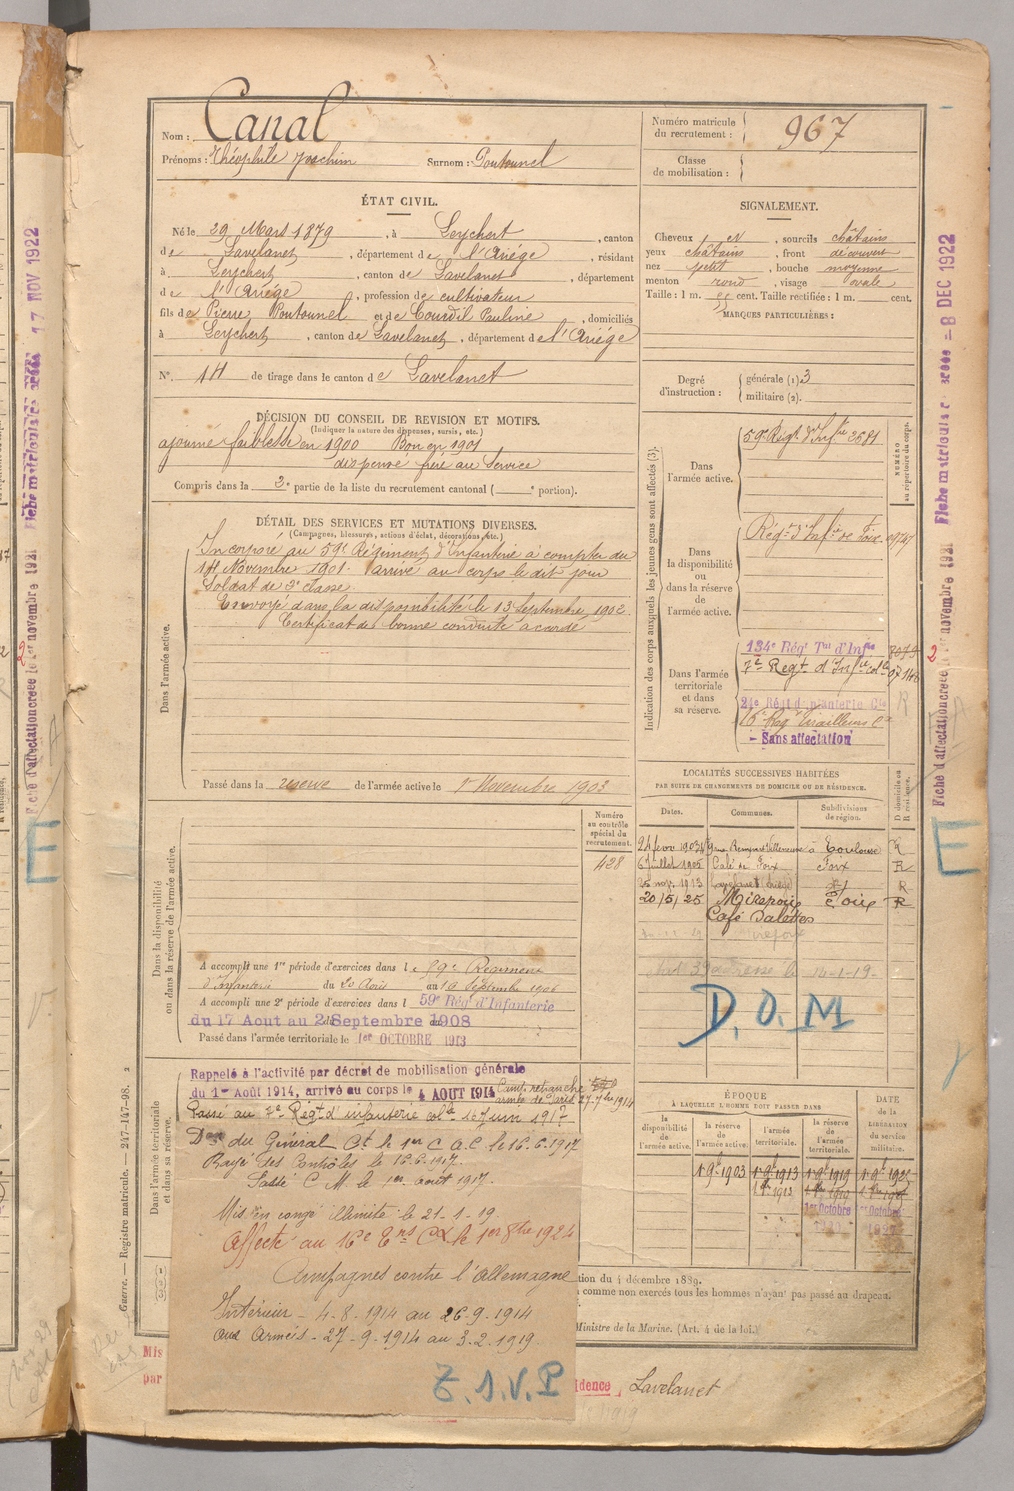 Nom : Canal
Prénoms : Théophile Joachim Surnom : Poutounel
Numéro matricule du recrutement : 967
Classe de mobilisation :
ÉTAT CIVIL.
Né le 29 Mars 1879, à Leychert, canton
de Lavelanet, département de l'Ariége, résidant
à Leychert, canton de Lavelanet, département
de l'Ariége, profession de cultivateur
fils de Pierre Poutounel et de Courdil Pauline, domiciliés
à Leychert, canton de Lavelanet, département de l'Ariége
N°. 14 de tirage dans le canton de Lavelanet
SIGNALEMENT.
Cheveux et, sourcils châtains
yeux châtains, front découvert
nez petit, bouche moyenne
menton rond, visage ovale
Taille : 1 m. cent. Taille rectifiée : 1 m. cent.
MARQUES PARTICULIÈRES :
Degré d'instruction : générale (1) 3
militaire (2).
DÉCISION DU CONSEIL DE REVISION ET MOTIFS.
(Indiquer la nature des dispenses, sursis, etc.)
ajourné faiblesse en 1900 Bon en 1901
dispensé frère au Service
Compris dans la 2e partie de la liste du recrutement cantonal ( e portion).
DÉTAIL DES SERVICES ET MUTATIONS DIVERSES.
(Campagnes, blessures, actions d'éclat, décorations, etc.)
Dans l'armée active.
Incorporé au 59e Régiment d'Infanterie à compter du
14 Novembre 1901. arrivé au corps le dit jour
Soldat de 2e classe.
Envoyé dans la disponibilité le 13 Septembre 1902.
Certificat de bonne conduite accordé
Passé dans la réserve de l'armée active le 1er Novembre 1903
Indication des corps auxquels les jeunes gens sont affectés (3).
NUMÉRO au répertoire du corps.
Dans l'armée active.
59e Régt d'Infie 2581
Dans la disponibilité ou dans la réserve de l'armée active.
Régt d'Infie de Foix
Dans l'armée territoriale et dans sa réserve.
134e Régt Tal d'Infie
7e Régt d'Infie colle
24e Régt d'
16e Tirailleurs
- Sans affectation
LOCALITÉS SUCCESSIVES HABITÉES
PAR SUITE DE CHANGEMENTS DE DOMICILE OU DE RÉSIDENCE.
Dates. Communes. Subdivisions de région. D domicile ou R résidence.
24 févr 1903 Toulouse R
6 juillet 1905 Café de Foix Foix R
25 nov. 1913 R
20/5/25 Mirepoix Foix R
Café
adresse le 14-1-19-
D. O. M
Dans la disponibilité ou dans la réserve de l'armée active.
Numéro au contrôle spécial du recrutement.
428
A accompli une 1re période d'exercices dans le 59e Régiment
d'Infanterie du 20 Août au 16 Septembre 1906
A accompli une 2e période d'exercices dans l 59e Rég d'Infanterie
du 17 Aout au 2 Septembre 1908
Passé dans l'armée territoriale le 1er OCTOBRE 1913
Dans l'armée territoriale et dans sa réserve.
Rappelé à l'activité par décret de mobilisation générale
du 1er Août 1914, arrivé au corps le 4 AOUT 1914 Camp retranché
armée de Paris 27-7bre 1914
Passé au 7e Régt d'infanterie colle le Juin 1917
Don du Général Ct le 1er C.A.C. le 16.6.1917
Rayé des Contrôles le 16.6.1917.
C.M. le 1er août 1917.
Mis en congé illimité le 21-1-19
Affecté au 16e le 1er 8bre 1924
Campagnes contre l'Allemagne
Intérieur - 4-8-1914 au 26-9-1914
aux Armées - 27-9-1914 au 3-2-1919.
T. S. V. P
ÉPOQUE
À LAQUELLE L'HOMME DOIT PASSER DANS
DATE de la LIBÉRATION du service militaire.
la disponibilité de l'armée active. la réserve de l'armée active. l'armée territoriale. la réserve de l'armée territoriale.
1er 9bre 1903 1er 9bre 1913 1er 9bre 1919
1er Octobre
tion du 4 décembre 1889.
comme non exercés tous les hommes n'ayant pas passé au drapeau.
Ministre de la Marine. (Art. 4 de la loi.)
Mis
par
idence Lavelanet
Guerre. — Registre matricule. — 247-147-98. 2
17 NOV 1922
Fiche d'affectation créée le 1er novembre 1921
E
Fiche matricule créée - 8 DEC 1922
Fiche d'affectation créée le 1er novembre 1921
E
2
2